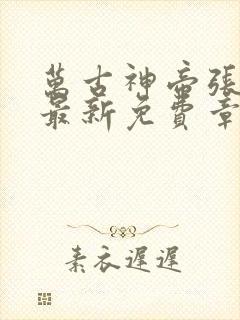 萬古神帝張
最新免費章
素衣遲遲